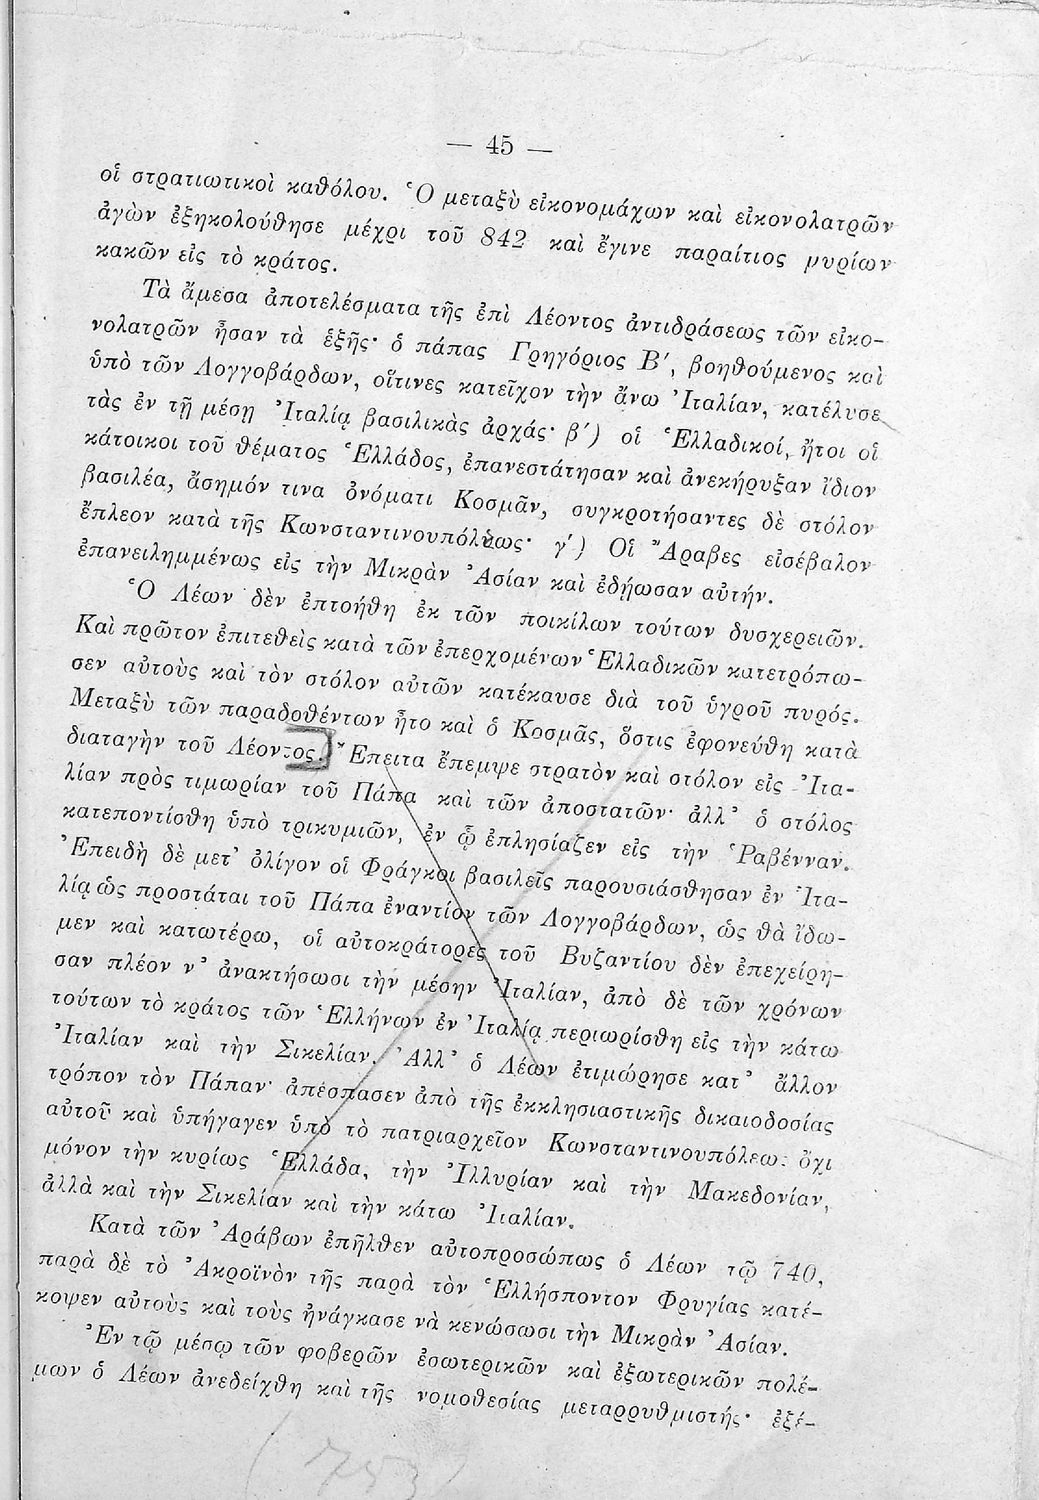 — 45 —
οἱ στρατιωτικοὶ καθόλου. Ὁ μεταξὺ εἰκονομάχων καὶ εἰκονολατρῶν
ἀγὼν ἐξηκολούθησε μέχρι τοῦ 842 καὶ ἔγινε παραίτιος μυρίων
κακῶν εἰς τὸ κράτος.
Τὰ ἄμεσα ἀποτελέσματα τῆς ἐπὶ Λέοντος ἀντιδράσεως τῶν εἰκο-
νολατρῶν ἦσαν τὰ ἑξῆς· ὁ πάπας Γρηγόριος Β′, βοηθούμενος καὶ
ὑπὸ τῶν Λογγοβάρδων, οἵτινες κατεῖχον τὴν ἄνω Ἰταλίαν, κατέλυσε
τὰς ἐν τῇ μέσῃ Ἰταλίᾳ βασιλικὰς ἀρχάς· β′) οἱ Ἑλλαδικοί, ἤτοι οἱ
κάτοικοι τοῦ θέματος Ἑλλάδος, ἐπανεστάτησαν καὶ ἀνεκήρυξαν ἴδιον
βασιλέα, ἄσημόν τινα ὀνόματι Κοσμᾶν, συγκροτήσαντες δὲ στόλον
ἔπλεον κατὰ τῆς Κωνσταντινουπόλεως· γ′) Οἱ Ἄραβες εἰσέβαλον
ἐπανειλημμένως εἰς τὴν Μικρὰν Ἀσίαν καὶ ἐδῄωσαν αὐτήν.
Ὁ Λέων δὲν ἐπτοήθη ἐκ τῶν ποικίλων τούτων δυσχερειῶν.
Καὶ πρῶτον ἐπιτεθεὶς κατὰ τῶν ἐπερχομένων Ἑλλαδικῶν κατετρόπω-
σεν αὐτοὺς καὶ τὸν στόλον αὐτῶν κατέκαυσε διὰ τοῦ ὑγροῦ πυρός.
Μεταξὺ τῶν παραδοθέντων ἦτο καὶ ὁ Κοσμᾶς, ὅστις ἐφονεύθη κατὰ
διαταγὴν τοῦ Λέοντος. Ἔπειτα ἔπεμψε στρατὸν καὶ στόλον εἰς Ἰτα-
λίαν πρὸς τιμωρίαν τοῦ Πάπα καὶ τῶν ἀποστατῶν· ἀλλ’ ὁ στόλος
κατεποντίσθη ὑπὸ τρικυμιῶν, ἐν ᾧ ἐπλησίαζεν εἰς τὴν Ῥαβένναν.
Ἐπειδὴ δὲ μετ’ ὀλίγον οἱ Φράγκοι βασιλεῖς παρουσιάσθησαν ἐν Ἰτα-
λίᾳ ὡς προστάται τοῦ Πάπα ἐναντίον τῶν Λογγοβάρδων, ὡς θὰ ἴδω-
μεν καὶ κατωτέρω, οἱ αὐτοκράτορες τοῦ Βυζαντίου δὲν ἐπεχείρη-
σαν πλέον ν’ ἀνακτήσωσι τὴν μέσην Ἰταλίαν, ἀπὸ δὲ τῶν χρόνων
τούτων τὸ κράτος τῶν Ἑλλήνων ἐν Ἰταλίᾳ περιωρίσθη εἰς τὴν κάτω
Ἰταλίαν καὶ τὴν Σικελίαν. Ἀλλ’ ὁ Λέων ἐτιμώρησε κατ’ ἄλλον
τρόπον τὸν Πάπαν· ἀπέσπασεν ἀπὸ τῆς ἐκκλησιαστικῆς δικαιοδοσίας
αὐτοῦ καὶ ὑπήγαγεν ὑπὸ τὸ πατριαρχεῖον Κωνσταντινουπόλεως ὄχι
μόνον τὴν κυρίως Ἑλλάδα, τὴν Ἰλλυρίαν καὶ τὴν Μακεδονίαν,
ἀλλὰ καὶ τὴν Σικελίαν καὶ τὴν κάτω Ἰταλίαν.
Κατὰ τῶν Ἀράβων ἐπῆλθεν αὐτοπροσώπως ὁ Λέων τῷ 740,
παρὰ δὲ τὸ Ἀκροϊνὸν τῆς παρὰ τὸν Ἑλλήσποντον Φρυγίας κατέ-
κοψεν αὐτοὺς καὶ τοὺς ἠνάγκασε νὰ κενώσωσι τὴν Μικρὰν Ἀσίαν.
Ἐν τῷ μέσῳ τῶν φοβερῶν ἐσωτερικῶν καὶ ἐξωτερικῶν πολέ-
μων ὁ Λέων ἀνεδείχθη καὶ τῆς νομοθεσίας μεταρρυθμιστής· ἐξέ-